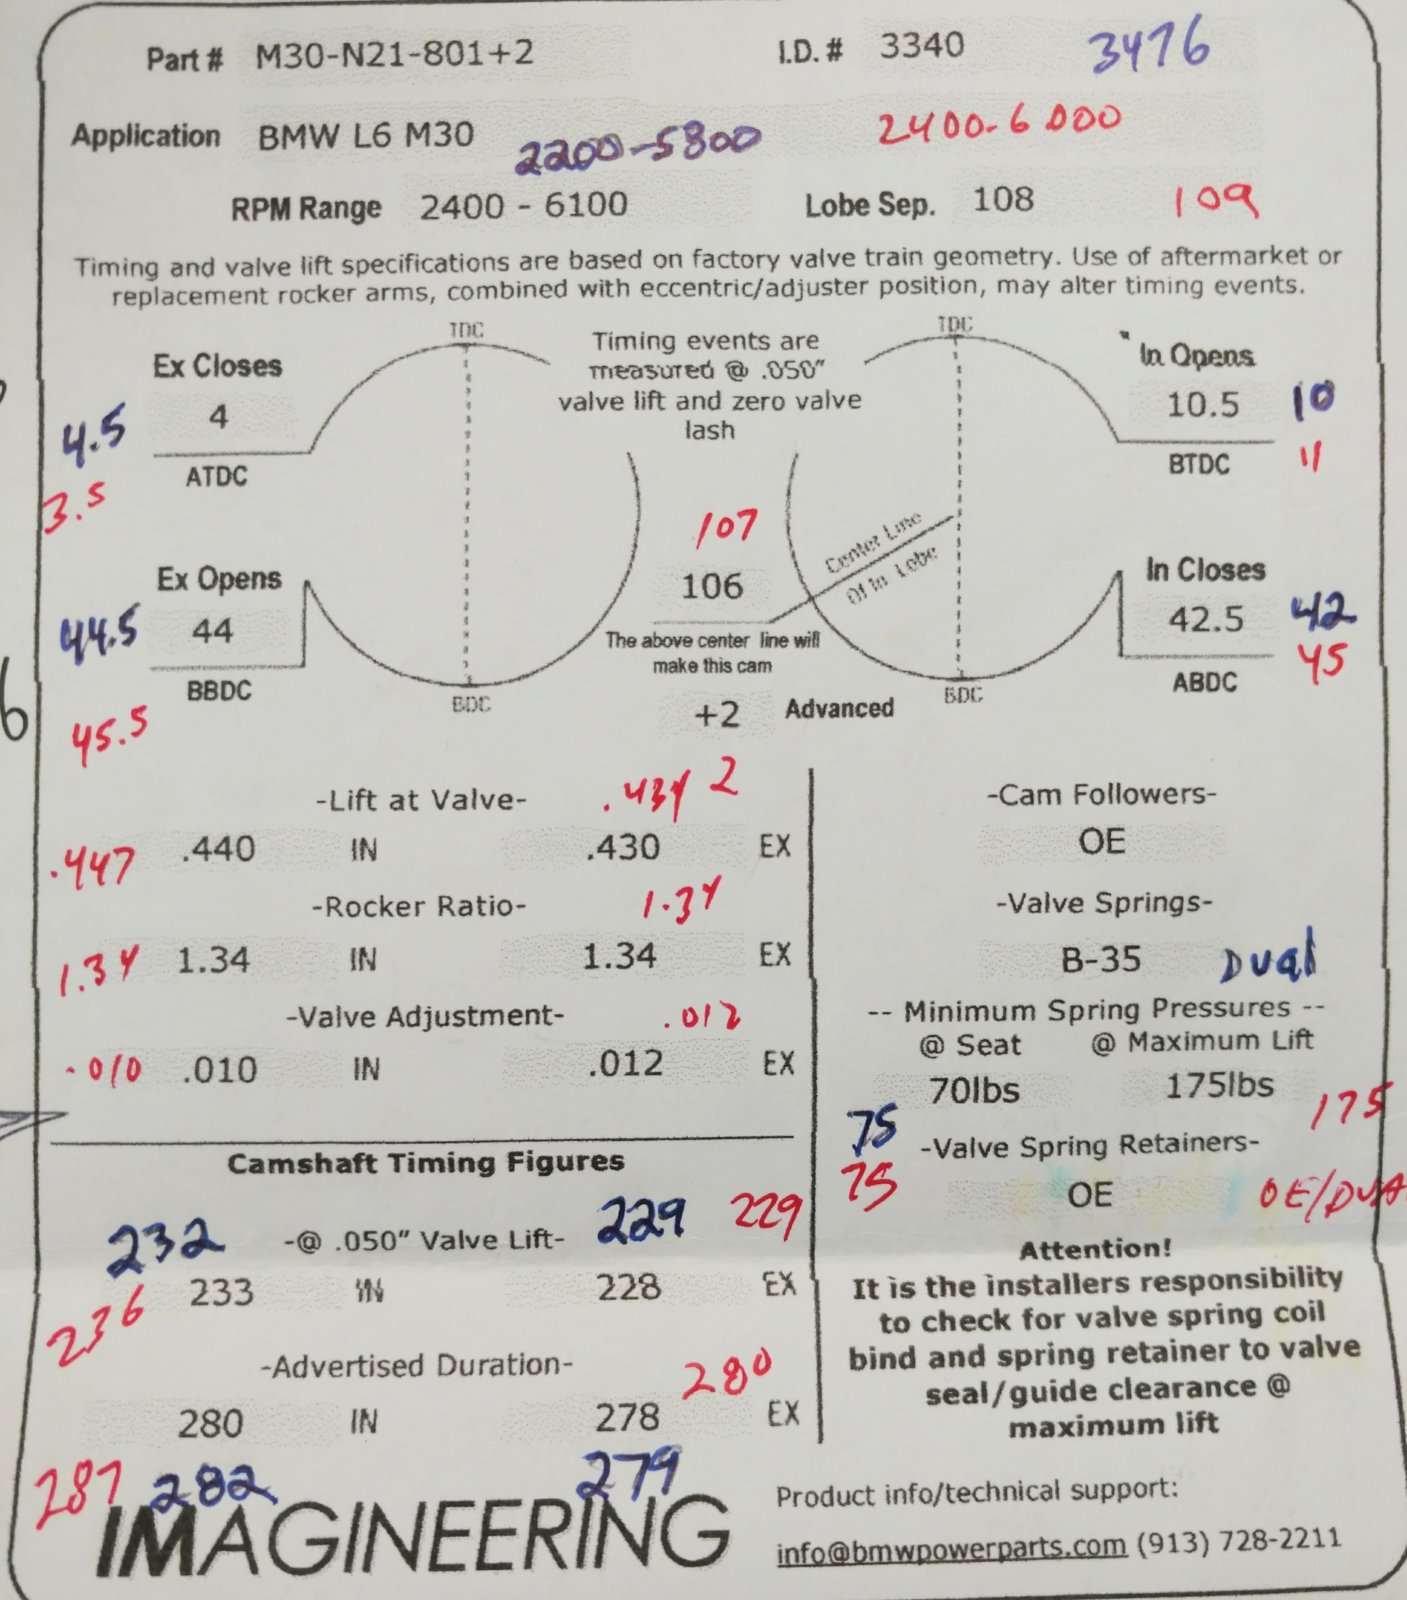 Part # M30-N21-801+2 I.D. # 3340 3476
Application BMW L6 M30 2200-5800 2400-6000
RPM Range 2400 - 6100 Lobe Sep. 108 109
Timing and valve lift specifications are based on factory valve train geometry. Use of aftermarket or
replacement rocker arms, combined with eccentric/adjuster position, may alter timing events.
TDC
Ex Closes
4.5 4
ATDC
3.5
Timing events are
measured @ .050”
valve lift and zero valve
lash
TDC
In Opens
10.5 10
BTDC 11
Ex Opens
44.5 44
BBDC
45.5
BDC
107
106
Center Line
Of In Lobe
The above center line will
make this cam
+2 Advanced
In Closes
42.5 42
ABDC 45
BDC
-Lift at Valve- .434 2
.447 .440 IN .430 EX
-Rocker Ratio- 1.34
1.34 1.34 IN 1.34 EX
-Valve Adjustment- .012
.010 .010 IN .012 EX
Camshaft Timing Figures
232 -@ .050” Valve Lift- 229 229
236 233 IN 228 EX
-Advertised Duration- 280
280 IN 278 EX
287 282 279
-Cam Followers-
OE
-Valve Springs-
B-35 Dual
-- Minimum Spring Pressures --
@ Seat @ Maximum Lift
70lbs 175lbs 175
75 -Valve Spring Retainers-
75 OE OE/DUA
Attention!
It is the installers responsibility
to check for valve spring coil
bind and spring retainer to valve
seal/guide clearance @
maximum lift
IMAGINEERING
Product info/technical support:
info@bmwpowerparts.com (913) 728-2211